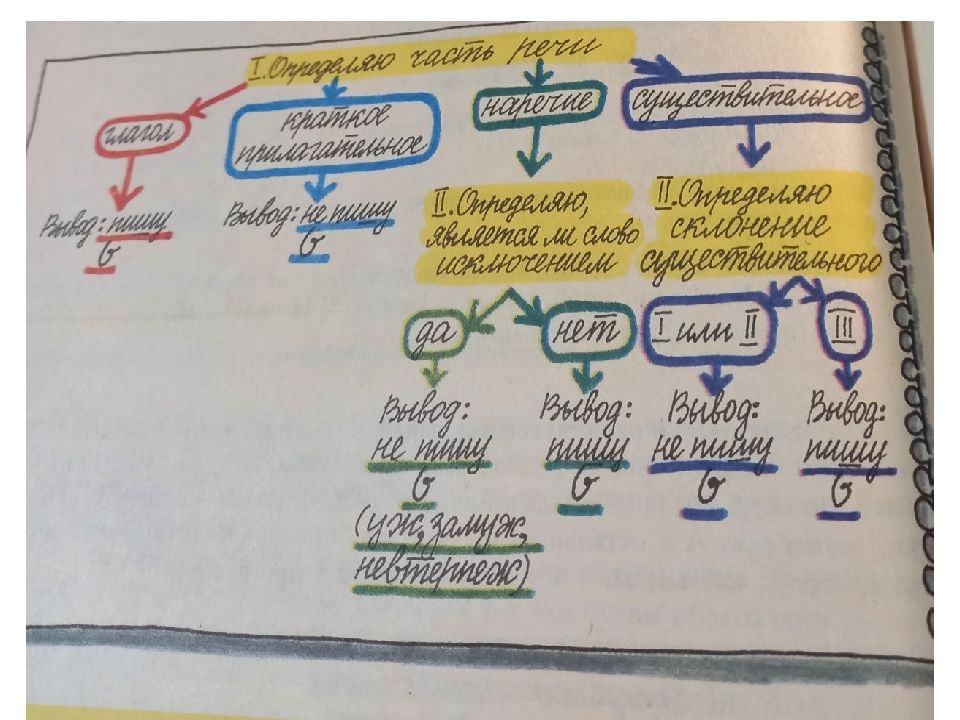 I. Определяю часть речи
глагол
краткое
прилагательное
наречие
существительное
Вывод: пишу
ь
Вывод: не пишу
ь
II. Определяю,
является ли слово
исключением
II. Определяю
склонение
существительного
да
нет
I или II
III
Вывод:
не пишу
ь
(уж, замуж,
невтерпеж)
Вывод:
пишу
ь
Вывод:
не пишу
ь
Вывод:
пишу
ь